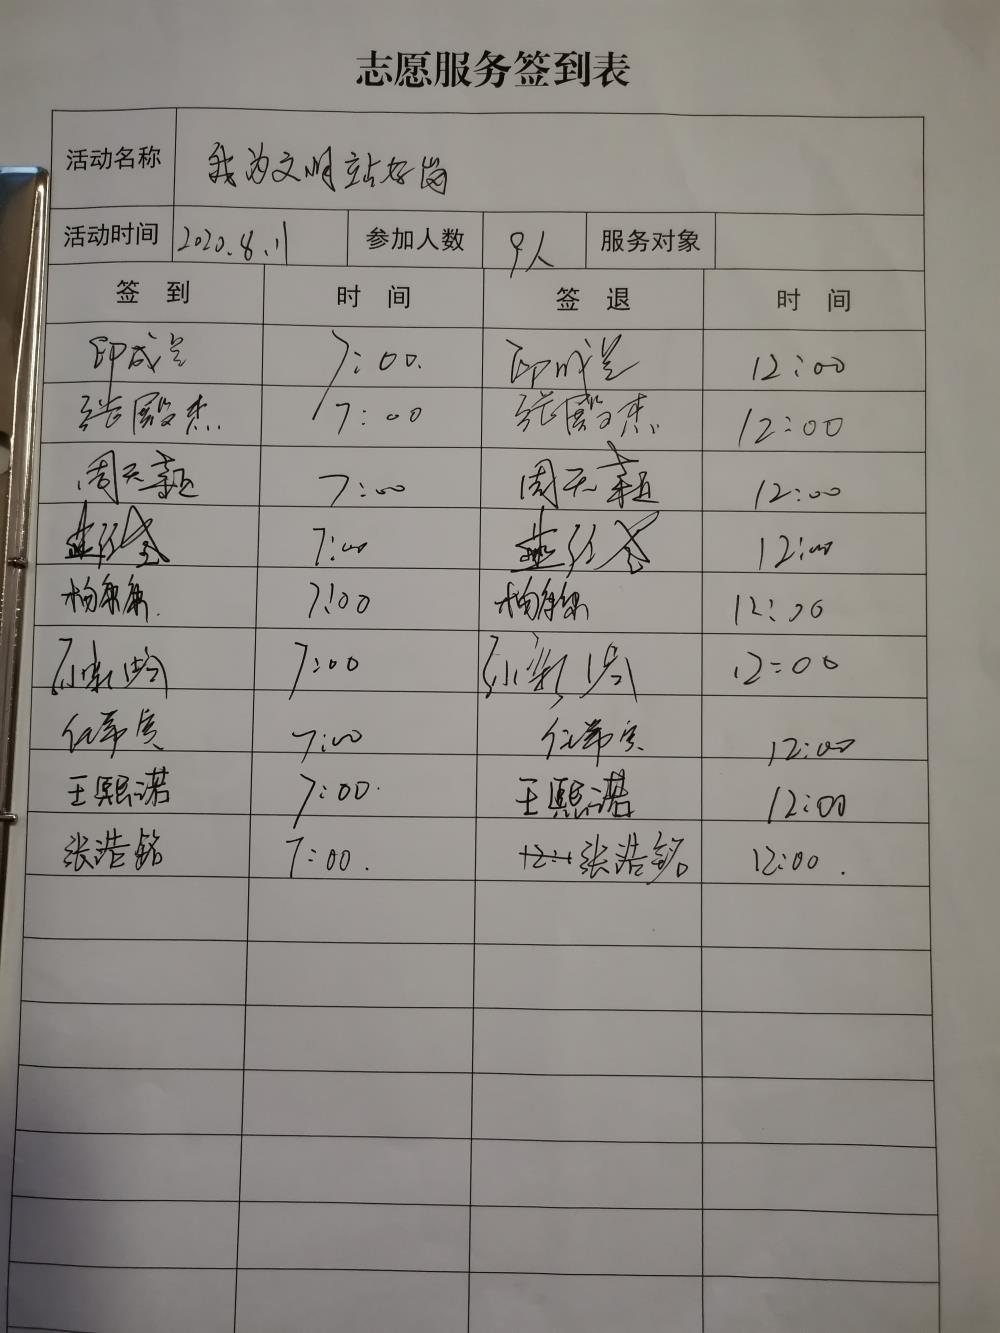 志愿服务签到表
活动名称 我为文明站好岗
活动时间 2020.8.11 参加人数 9人 服务对象
签 到 时 间 签 退 时 间
印成 7:00. 印成 12:00
张殿杰 7:00 张殿杰 12:00
周天 7:00 周天 12:00
7:00 12:00
杨 7:00 杨 12:00
孙 7:00 孙 12:00
任 7:00 任 12:00
王熙诺 7:00. 王熙诺 12:00
张浩铭 7:00. 张浩铭 12:00.